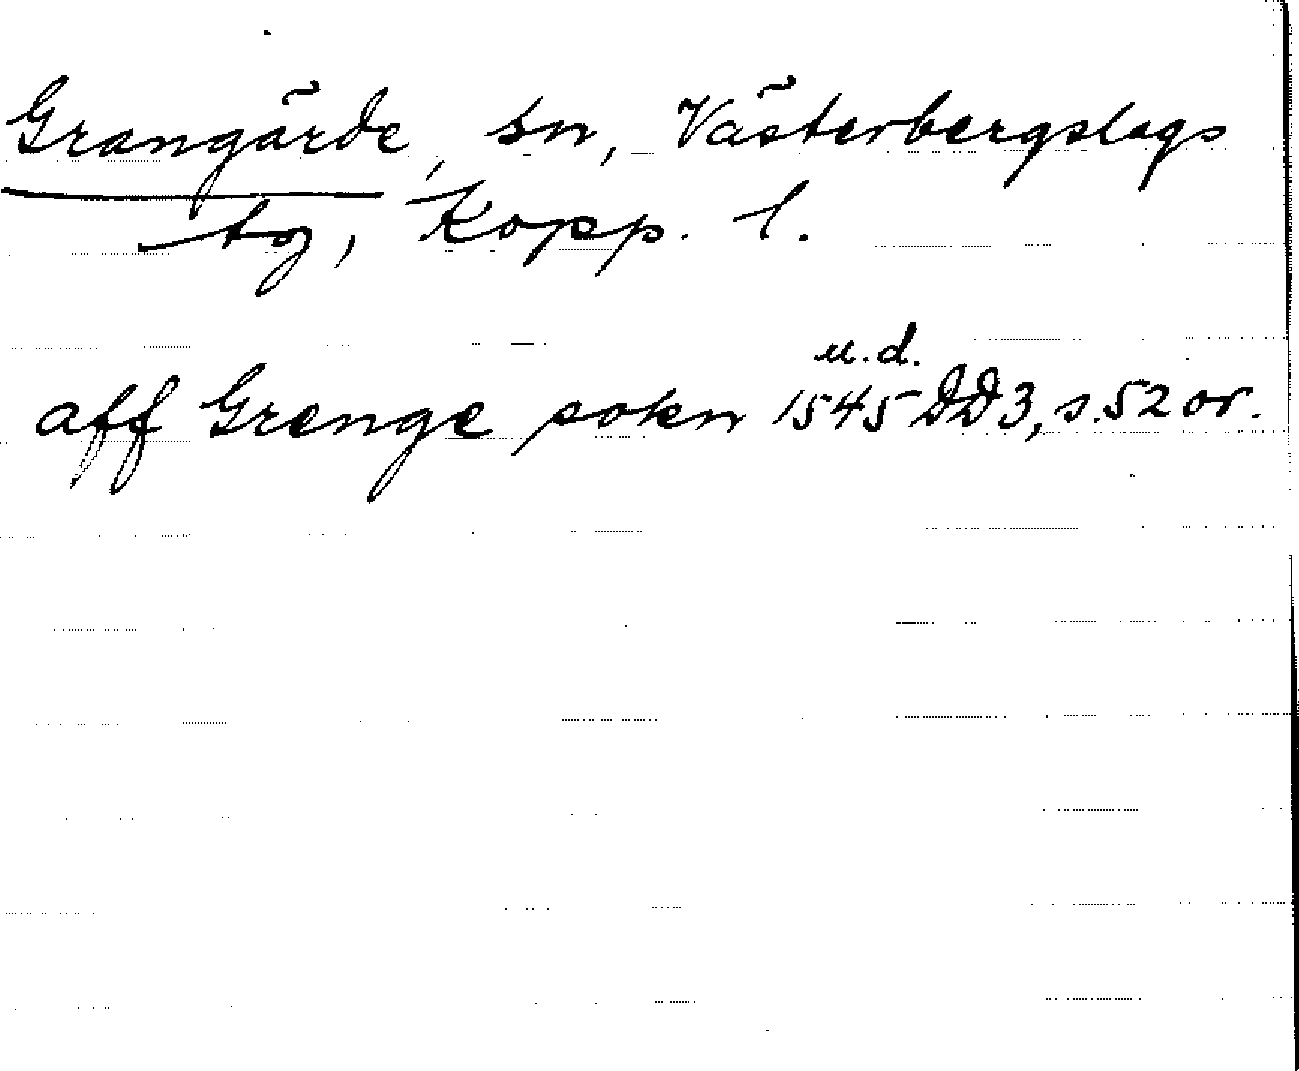 Grangärde, sn, Västerbergslags
tg, Kopp. l.
u.d.
aff Grenge sokn 1545 DD3, s. 52 or.